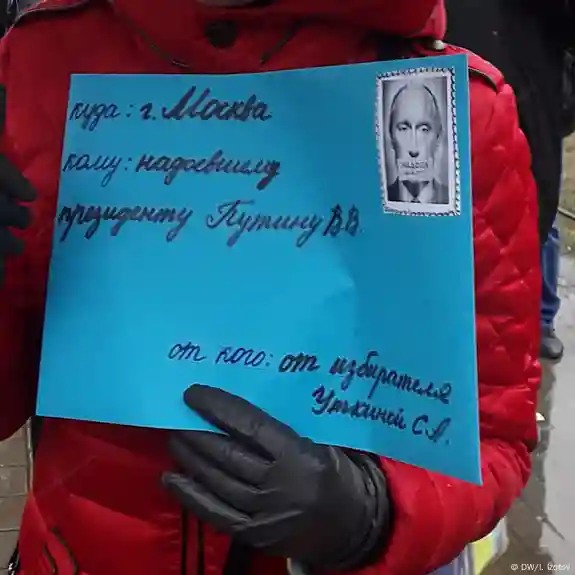 куда: г. Москва
кому: надоевшему
президенту Путину В.В.
надоел
от кого: от избирателя
Уткиной С.А.
© DW/I. Izotov